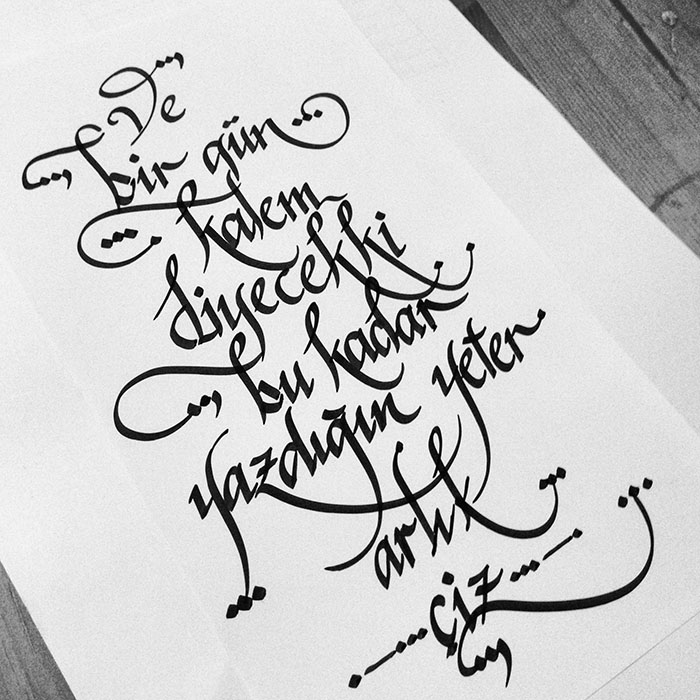 Ve
bir gün
kalem
diyecekki
bu kadar
yazdığın yeter
artık
çiz